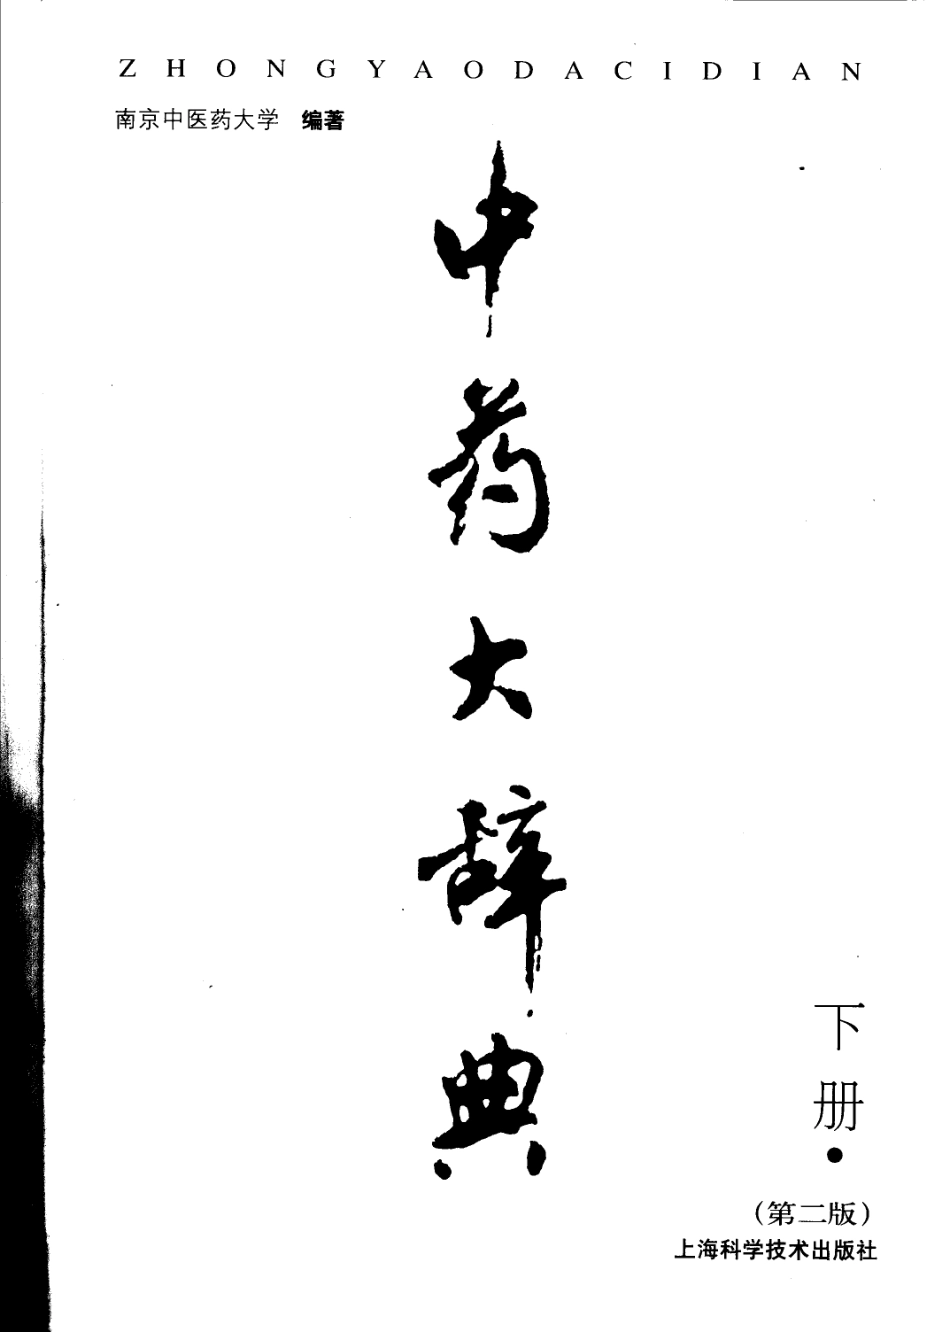 ZHONGYAODACIDIAN
南京中医药大学 编著
中药大辞典
下册·
(第二版)
上海科学技术出版社